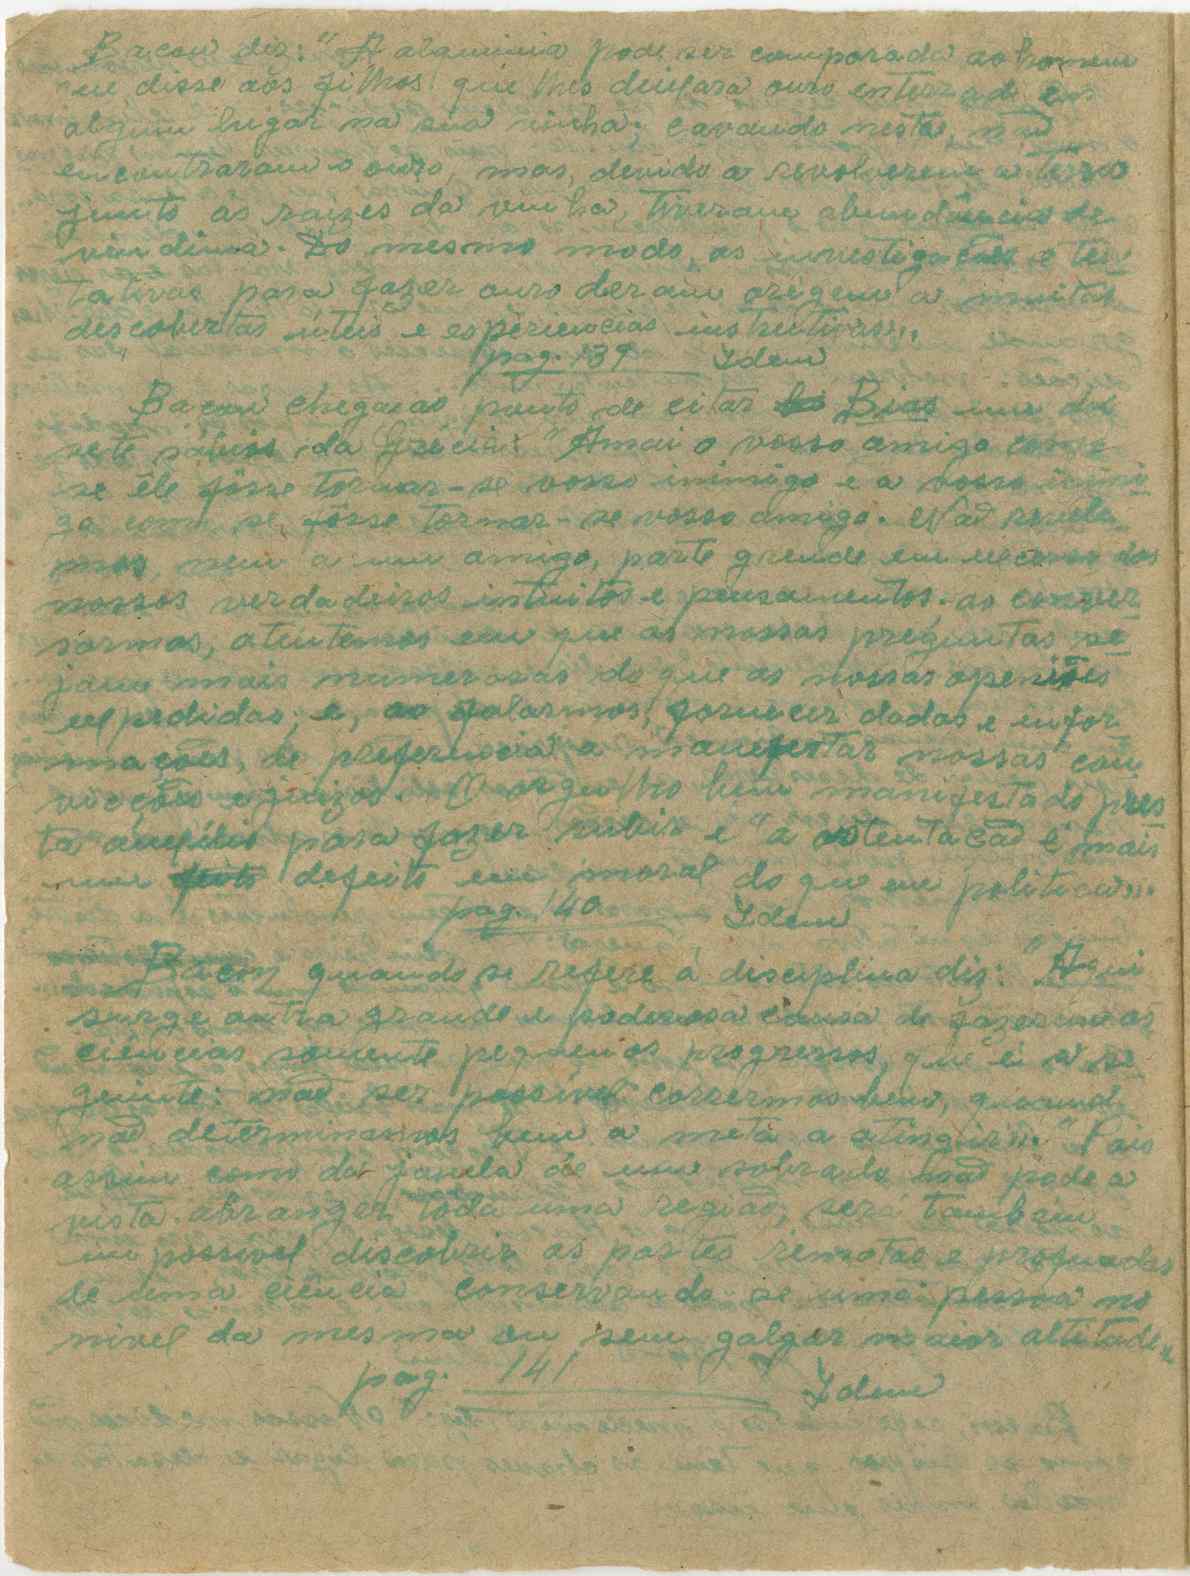 Bacon diz: "A alquimia pode ser comparada ao homem
que disse aos filhos que lhes deixara ouro enterrado em
algum lugar na sua vinha; cavando nesta, não
encontraram o ouro, mas, devido a revolverem a terra
junto ás raizes da vinha, tiveram abundância de
vindima. Do mesmo modo, as investigações e ten-
tativas para fazer ouro deram origem a muitas
descobertas úteis e esperiencias instrutivas".
pag. 139 Idem
Bacon chega ao ponto de citar Bias um dos
sete sábios da Grécia: "Amai o vosso amigo como
se êle fôsse tornar-se vosso inimigo e a vosso inimi-
go como se fôsse tornar-se vosso amigo. Não revele
mos, nem a um amigo, parte grande em excesso dos
nossos verdadeiros intuitos e pensamentos. ao conver
sarmos, atentemos em que as nossas preguntas se
jam mais numerosas do que as nossas openiões
expedidas; e, ao falarmos, fornecer dados e infor
mações, de preferencia a manefestar nossas con
vicções e juizos. O orgulho bem manifestado pres
ta auxílio para fazer subir e "a ostentação é mais
um defeito em moral do que em politica".
pag. 140 Idem
Bacon quando se refere á disciplina diz: "Aqui
surge outra grande e poderosa causa de fazerem as
ciências somente pequenos progressos, que é a se
guinte: não ser possível corrermos bem, quando
não determinamos bem a meta a atingir". "Pois
assim como da janela de um sobrado não pode a
vista abranger toda uma região, será tambem
impossivel discobrir as partes remotas e profundas
de uma ciência conservando-se uma pessoa no
nivel da mesma ou sem galgar maior altitude"
pag. 141 Idem